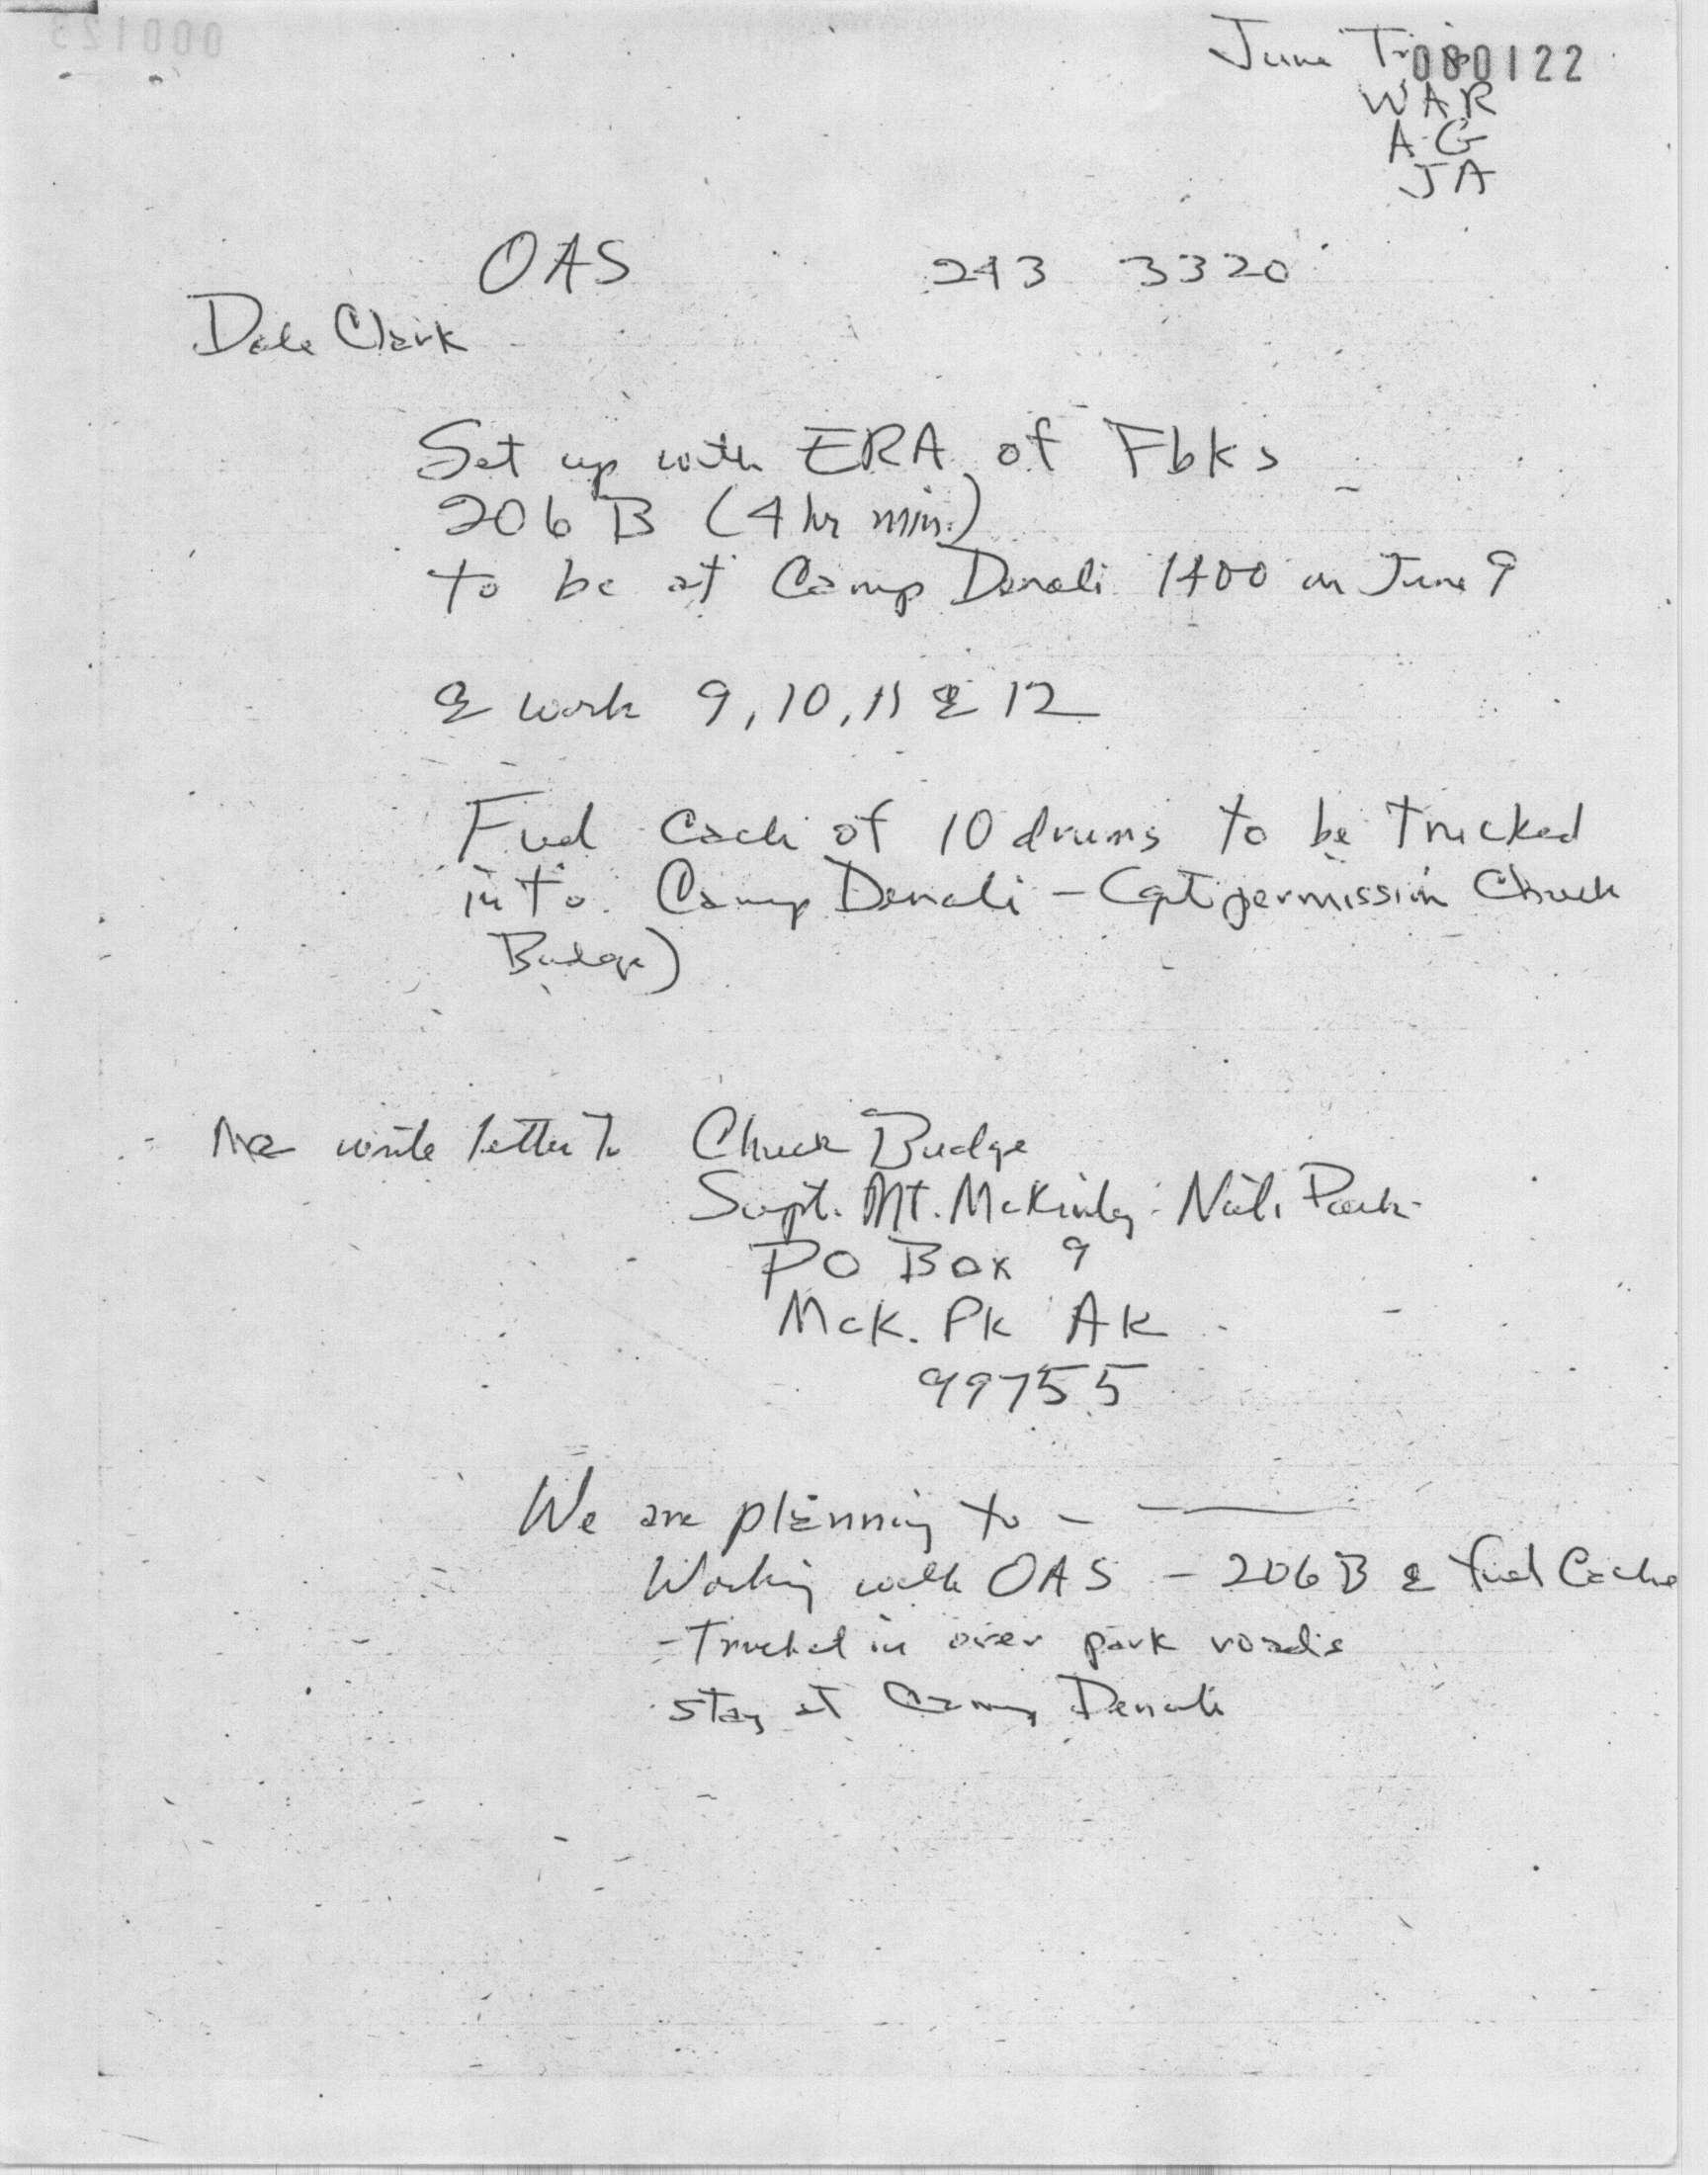 June Trip 000122
WAR
AG
JA
OAS 243 3320
Dale Clark
Set up with ERA of Fbks
206 B (4 hr min.)
to be at Camp Denali 1400 on June 9
& work 9, 10, 11 & 12
Fuel Cach of 10 drums to be trucked
in to Camp Denali - (get permission Chuck
Budge)
Me write letter to Chuck Budge
Supt. Mt. McKinley Natl. Park
PO Box 9
McK. Pk AK
99755
We are planning to -
Working with OAS - 206 B & fuel Cache
- Trucked in over park roads
stay at Camp Denali